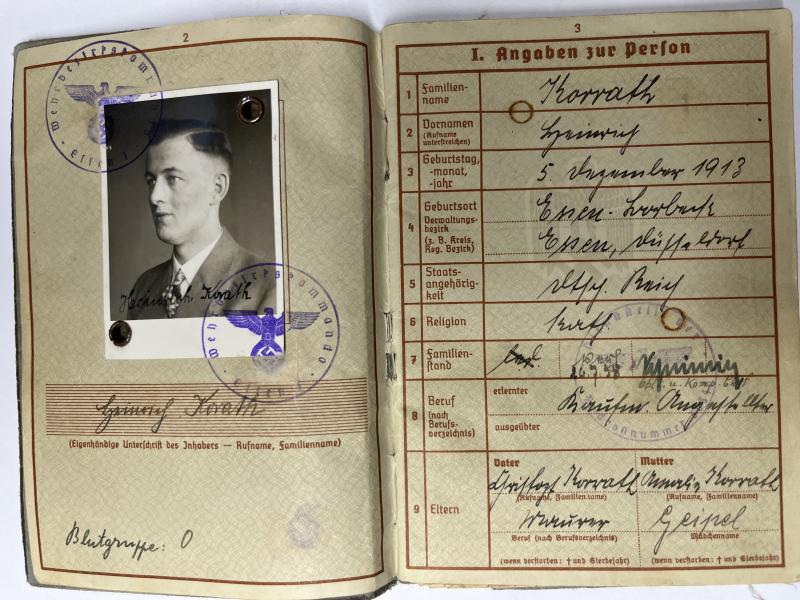 2
Wehrbezirkskommando
Essen I
Heinrich Korath
Wehrbezirkskommando
Essen I
Heinrich Korath
(Eigenhändige Unterschrift des Inhabers — Rufname, Familienname)
Blutgruppe: O
3
I. Angaben zur Person
1 Familien-
name
Korrath
2 Vornamen
(Rufname
unterstreichen)
Heinrich
3 Geburtstag,
-monat,
-jahr
5. Dezember 1913
4 Geburtsort
Verwaltungs-
bezirk
(z. B. Kreis,
Reg. Bezirk)
Essen-Borbeck
Essen, Düsseldorf
5 Staats-
angehörig-
keit
Dtsch. Reich
6 Religion
kath
7 Familien-
stand
led. verh
26.7.38
Oblt. u. Komp. Chef
8 Beruf
(nach
Berufs-
verzeichnis)
erlernter
Kaufm. Angestellter
ausgeübter
9 Eltern
Vater Mutter
Christoph Korrath Amalie Korrath
(Rufname, Familienname) (Rufname, Familienname)
Maurer Geipel
Beruf (nach Berufsverzeichnis) Mädchenname
(wenn verstorben: † und Sterbejahr) (wenn verstorben: † und Sterbejahr)